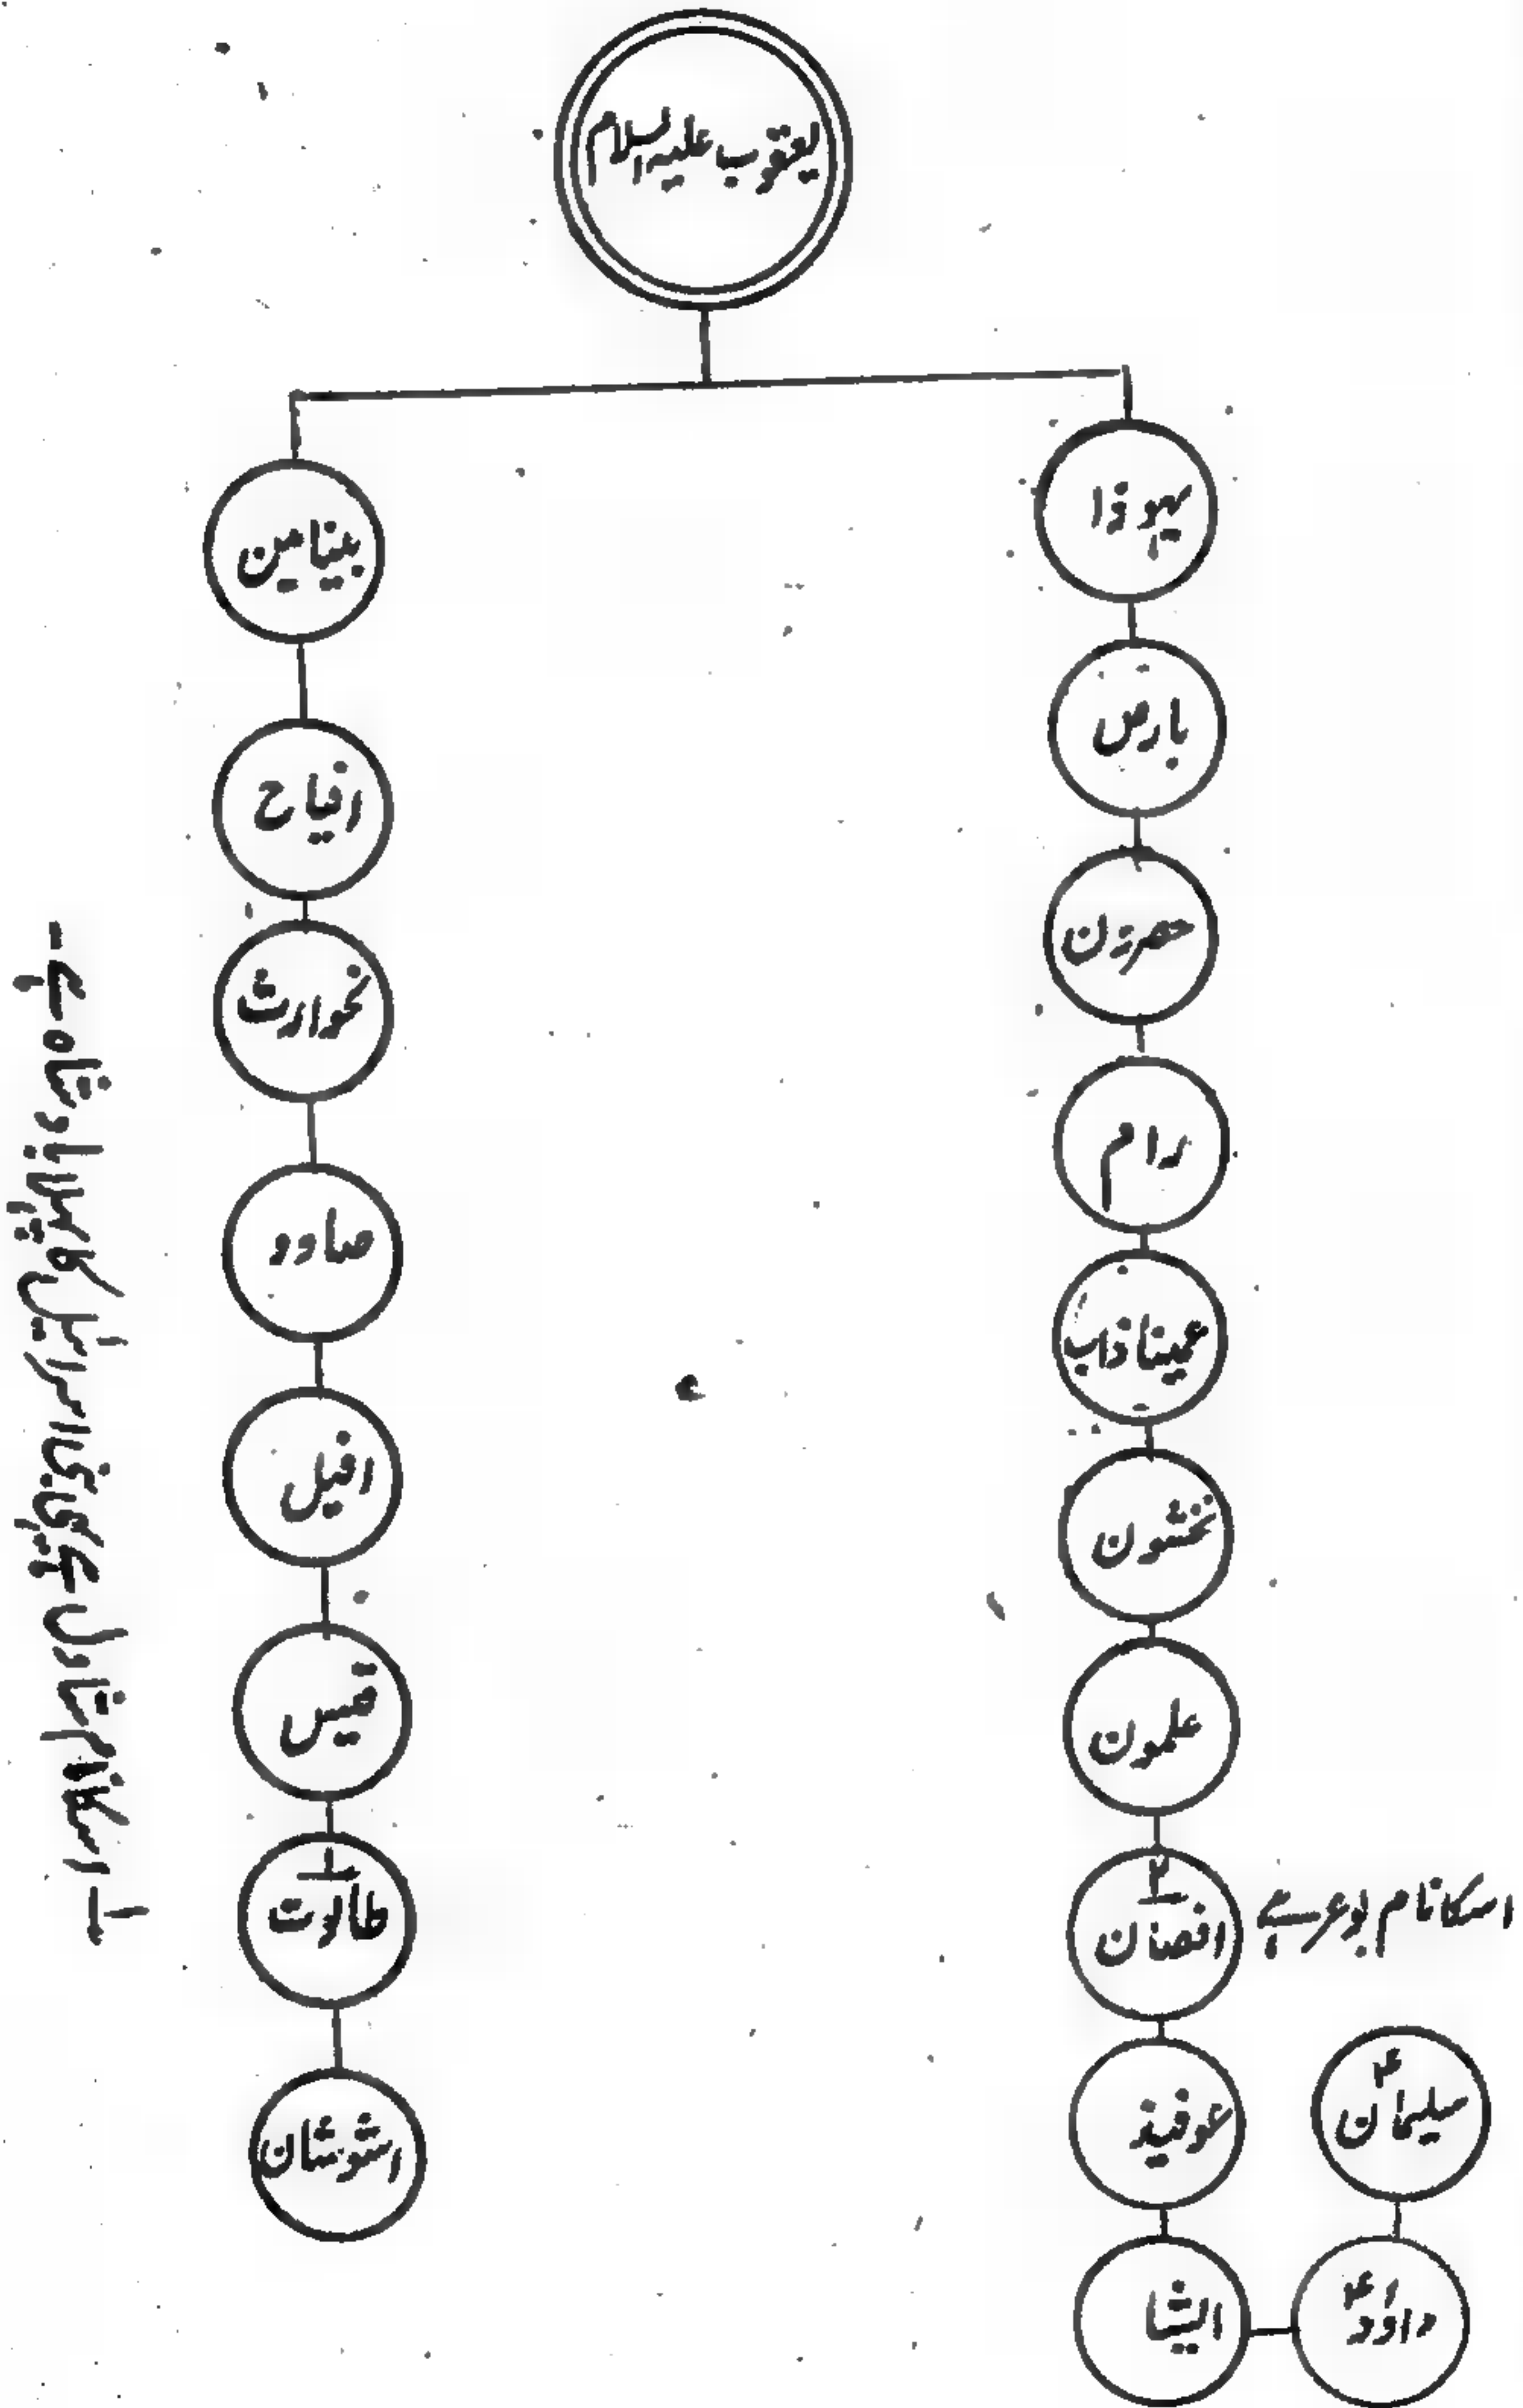 یعقوب علیہ السلام
یہوذا
بارص
حصرون
رام
عمیناذاب
نخشون
علمون
۲
افصان
اسکا نام بوعز ہے
عوفیذ
ایشا
داؤدؑ
سلیمانؑ
بنیامین
افیاح
نحوارث
صاوو
افیل
قیس
۱
طالوت
اشوشان
۱ـ اسکا نام شاول ہے یہی بنی اسرائیل کا پہلا بادشاہ ہے۔